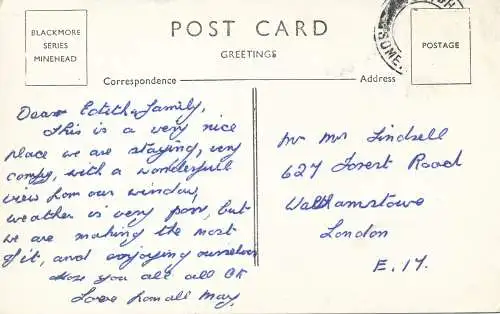 BLACKMORE
SERIES
MINEHEAD
POST CARD
GREETINGS
POSTAGE
Correspondence
Address
Dear Edith & family,
This is a very nice
place we are staying, very
comfy, with a wonderfull
view from our window,
weather is very poor, but
we are making the most
of it, and enjoying ourselves
Hope you are all OK
Love from all May.
Mr Mrs Lindsell
627 Forest Road
Walthamstowe
London
E. 17.